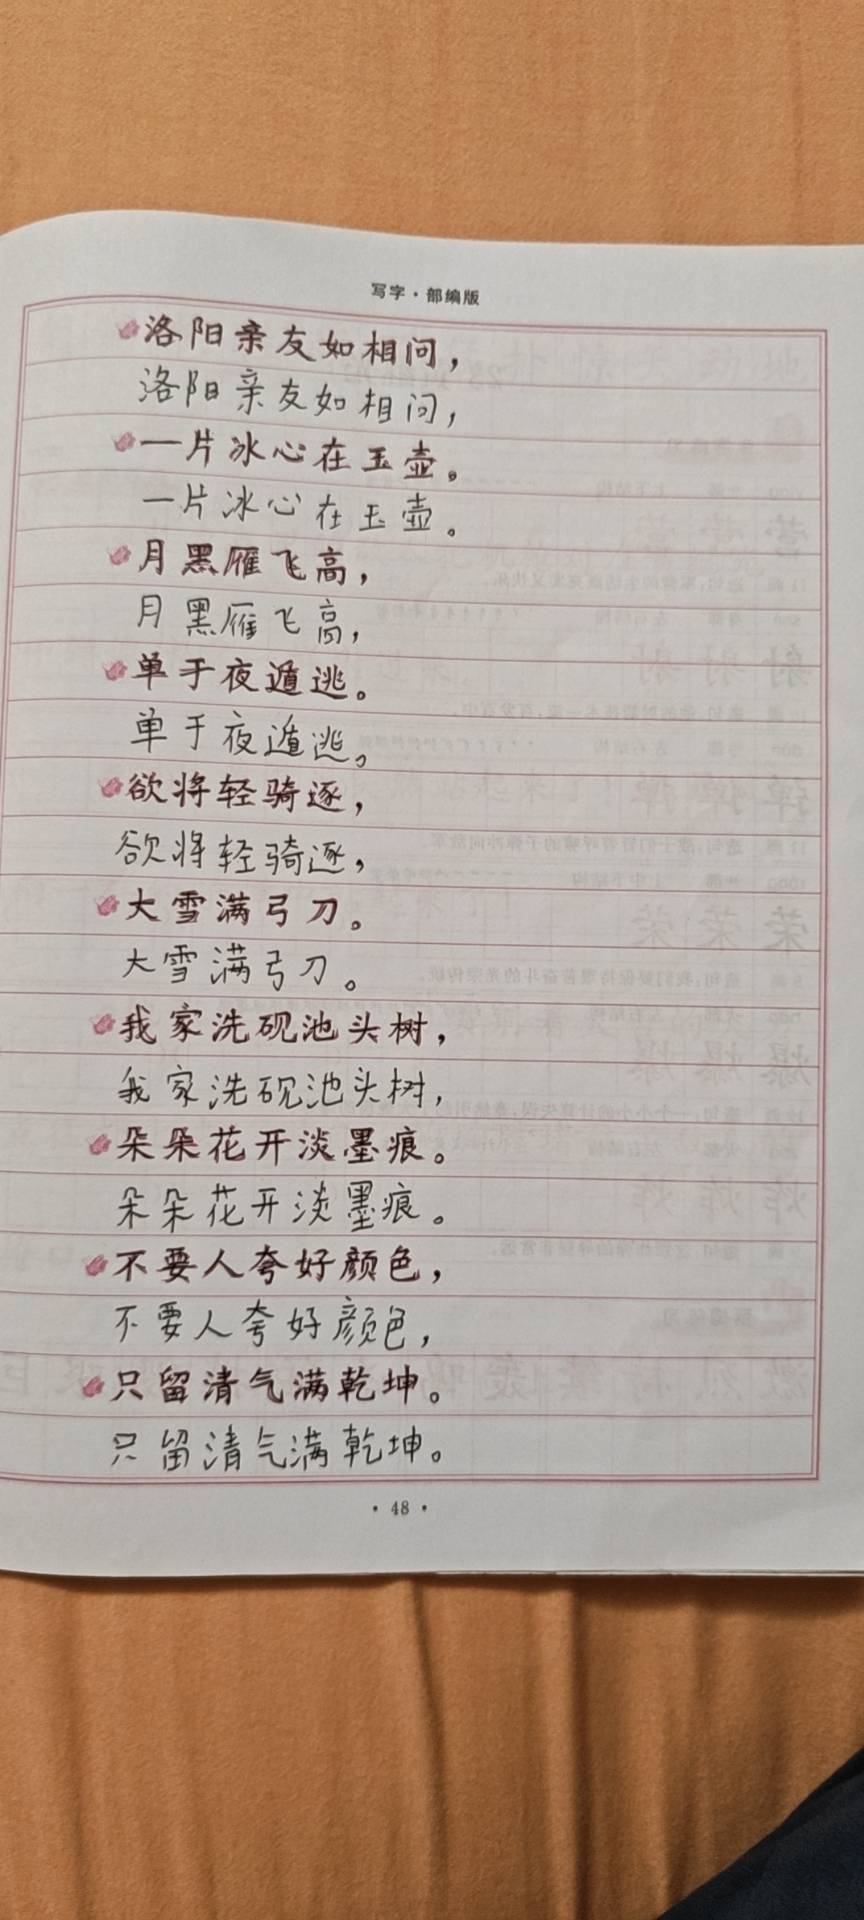 写字·部编版
洛阳亲友如相问，
洛阳亲友如相问，
一片冰心在玉壶。
一片冰心在玉壶。
月黑雁飞高，
月黑雁飞高，
单于夜遁逃。
单于夜遁逃。
欲将轻骑逐，
欲将轻骑逐，
大雪满弓刀。
大雪满弓刀。
我家洗砚池头树，
我家洗砚池头树，
朵朵花开淡墨痕。
朵朵花开淡墨痕。
不要人夸好颜色，
不要人夸好颜色，
只留清气满乾坤。
只留清气满乾坤。
·48·